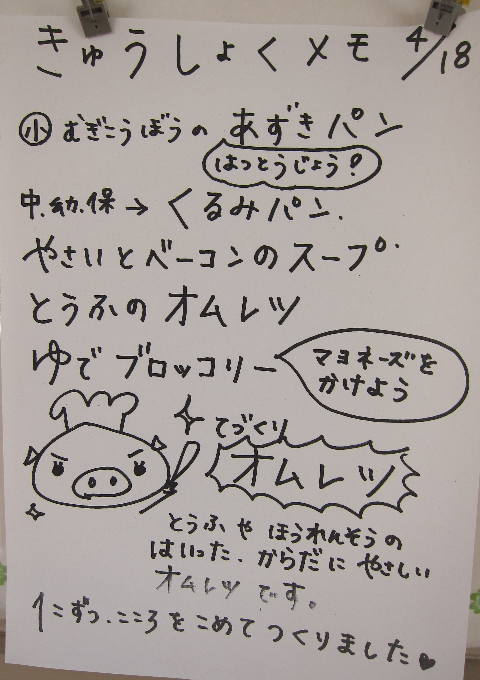 きゅうしょくメモ 4/18
小 むぎこうぼうの あずきパン
はっとうじょう?
中.幼.保→くるみパン.
やさいとベーコンのスープ.
とうふの オムレツ
ゆで ブロッコリー
マヨネーズを
かけよう
てづくり
オムレツ
とうふ や ほうれんそうの
はいった.からだに やさしい
オムレツ です。
1こずつ.こころを こめて つくりました♥